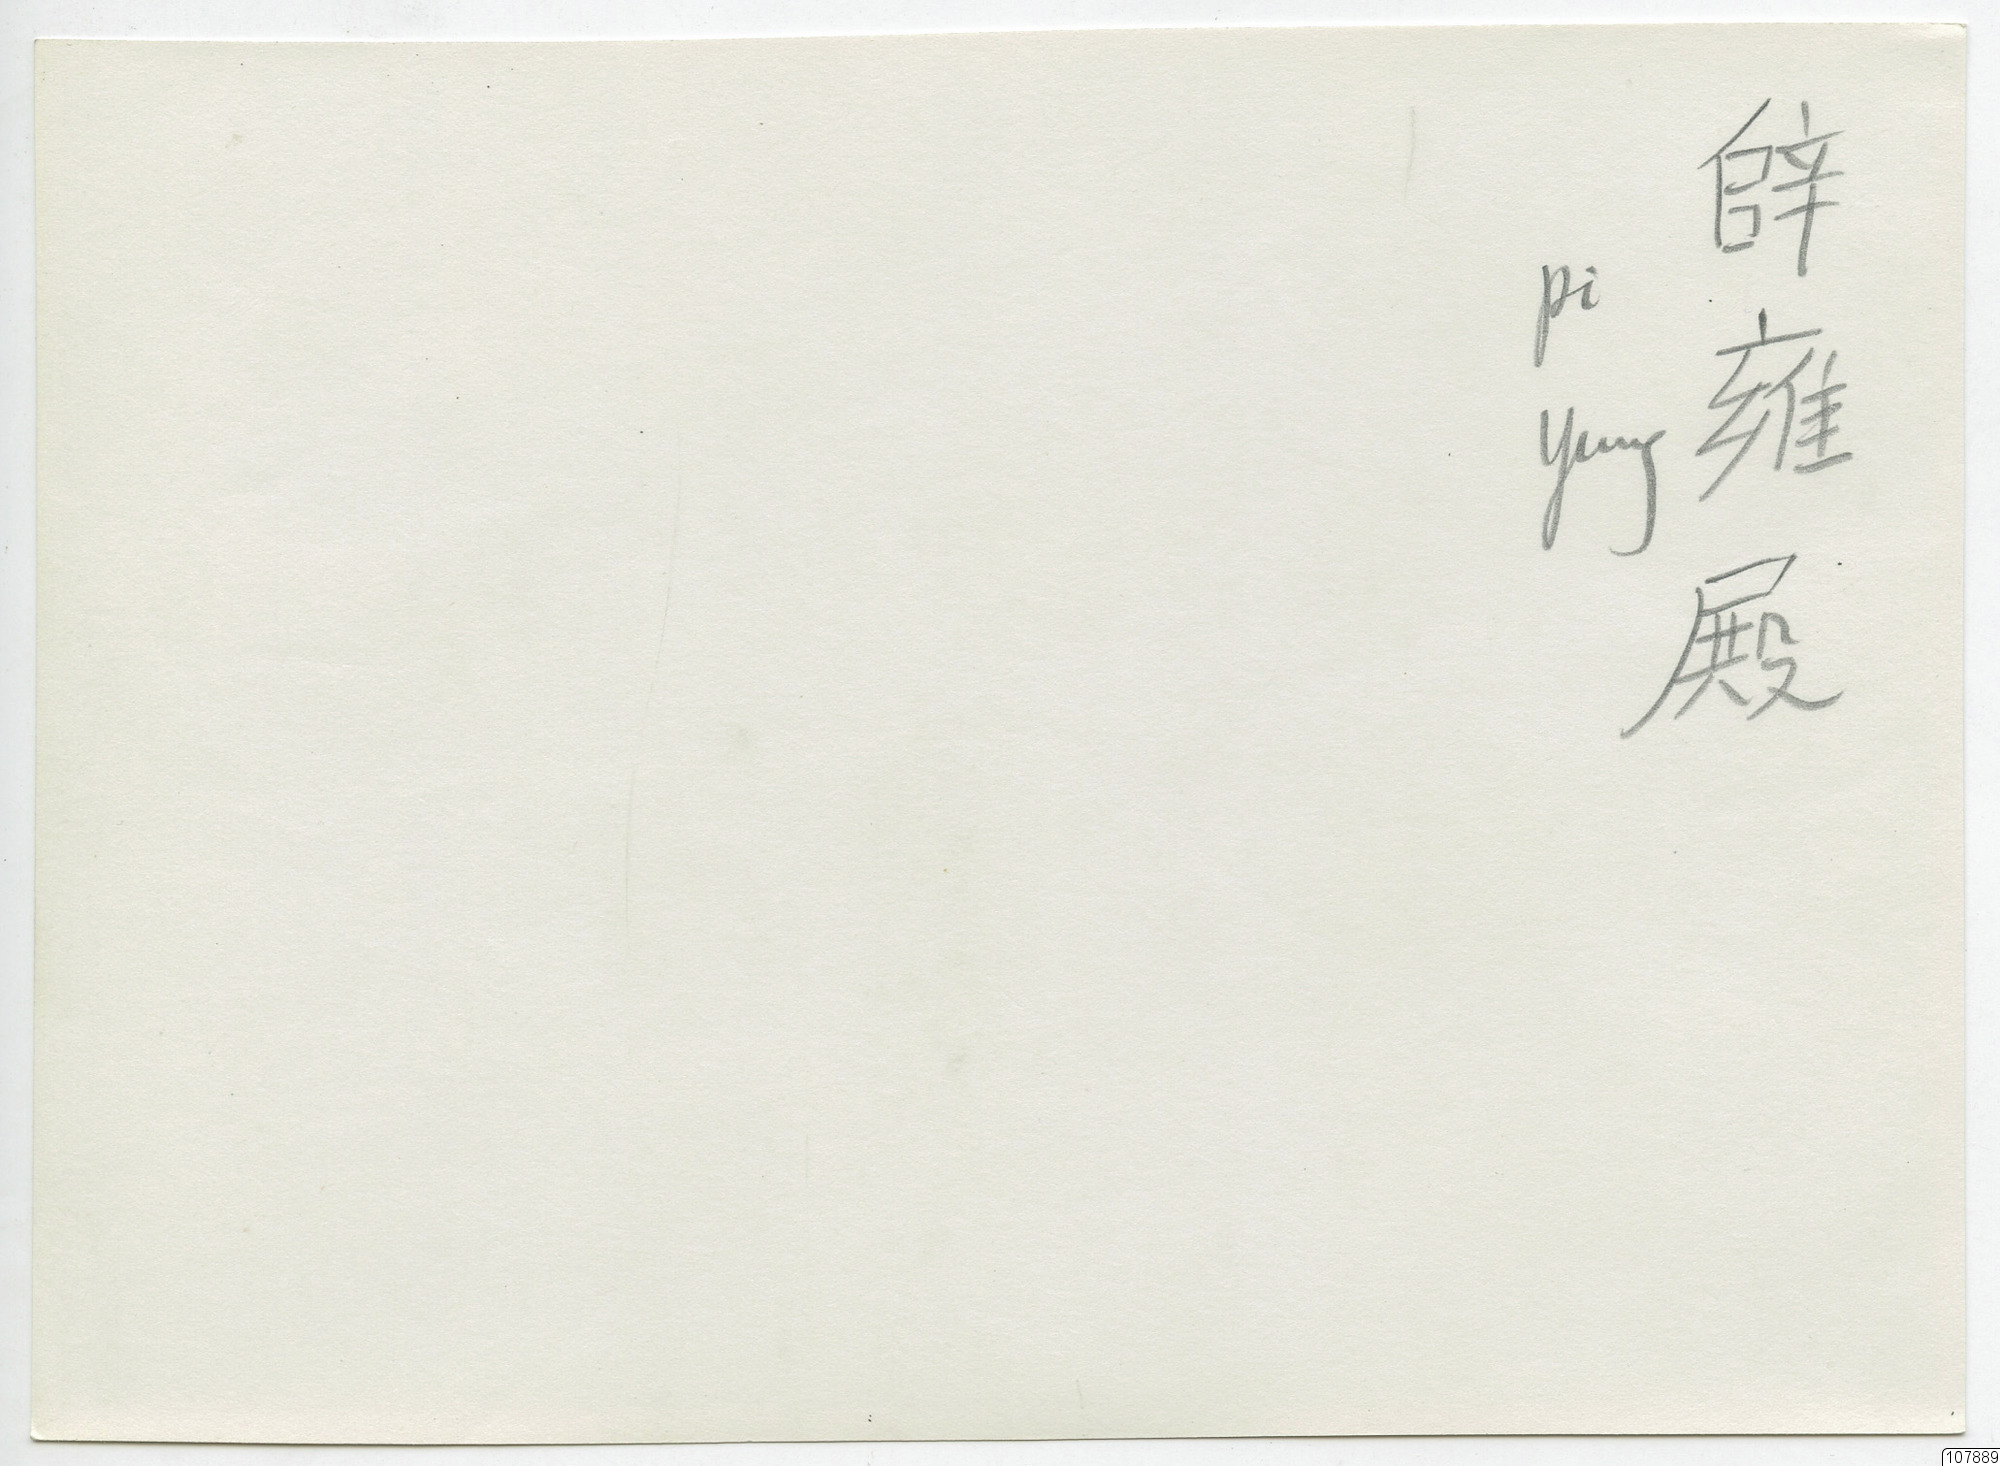 辟雍殿
pi
yung
107889